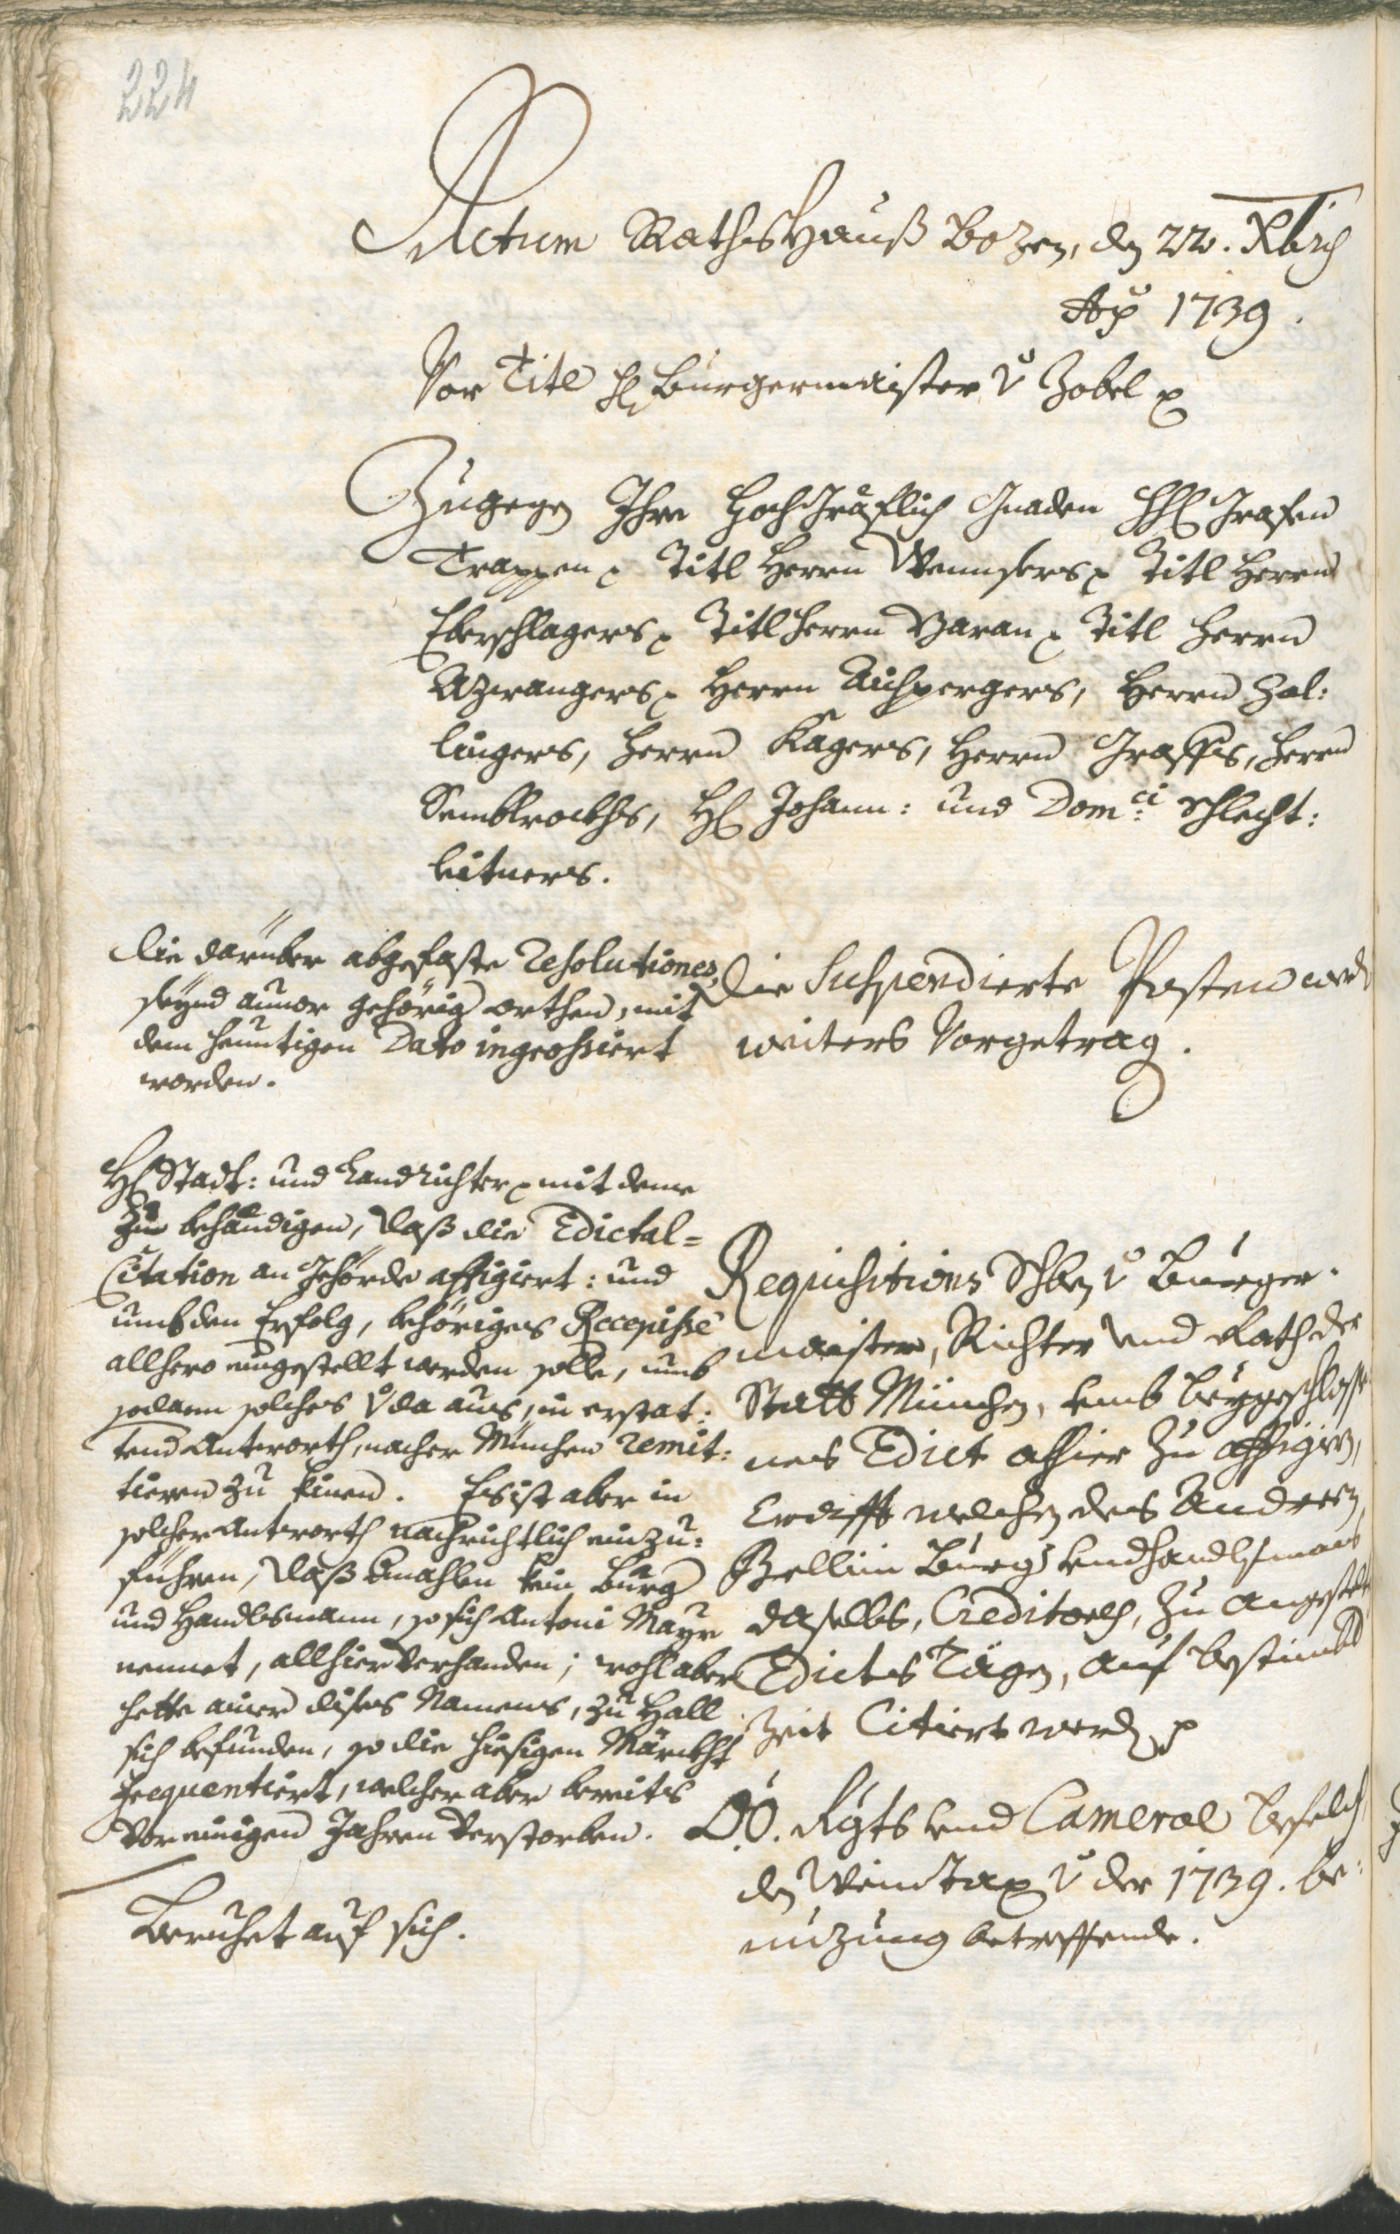 224
Actum Rathshauß Bozen, den 22. Xbris
Ao 1739.
Vor Titl H: Burgermaister v Zobel p
Zugegen Ihro Hochgräflich Gnaden HH: Grafen
Trappen p Titl Herrn Wennsers p Titl Herrn
Eberschlagers p Titl Herrn Zaran p Titl Herrn
Azwangers p Herrn Aichpergers, Herrn Zal:
lingers, Herrn Kagers, Herrn Grafsis, Herrn
Semblrockhs, H: Johann: und Dom:ci Schlecht:
leitners.
die darüber abgefaste Resolutiones
seynd ainor gehörig orthen, mit
dem heuntigen Dato ingrossiert
worden.
Die Suspendierte Posten werd
weiters Vorgetrag.
H: Stadt: und Landrichter p mit deme
Zu behändigen, daß die Edictal=
Citation an Gehörde affigiert: und
umb den Erfolg, behöriges Recepisse
allhero eingestellt werden solle, umb
sodann solches v da aus, in erstat:
tend Antworth, nacher München remit:
tieren zu kinen. Es ist aber in
solcher Antworth nachrichtlich einzu:
führen, daß dmahlen kein Burg
und Handlsmann, so sich Antoni Mayr
nennet, allhier verhanden; wohl aber
hette ainer dises Namens, zu Hall
sich befunden, so die hiesigen Märckht
frequentiert, welcher aber bereits
vor einigen Jahren verstorben.
Requisitions Schben v Burger:
maister, Richter und Rath der
Statt München, umb beygeschloss
nes Edict alhier zu affigirn,
Crafft welchen des Andreen
Bellin Burg: und handlsmans
daselbs, Creditores, zu angestelt
Edicts Tägen, auf bestimbt
Zeit Citiert werden p
Beruhet auf sich.
OÖ. Rgts und Cameral Befelch,
den Weintax v der 1739. be:
nuzung betreffende.